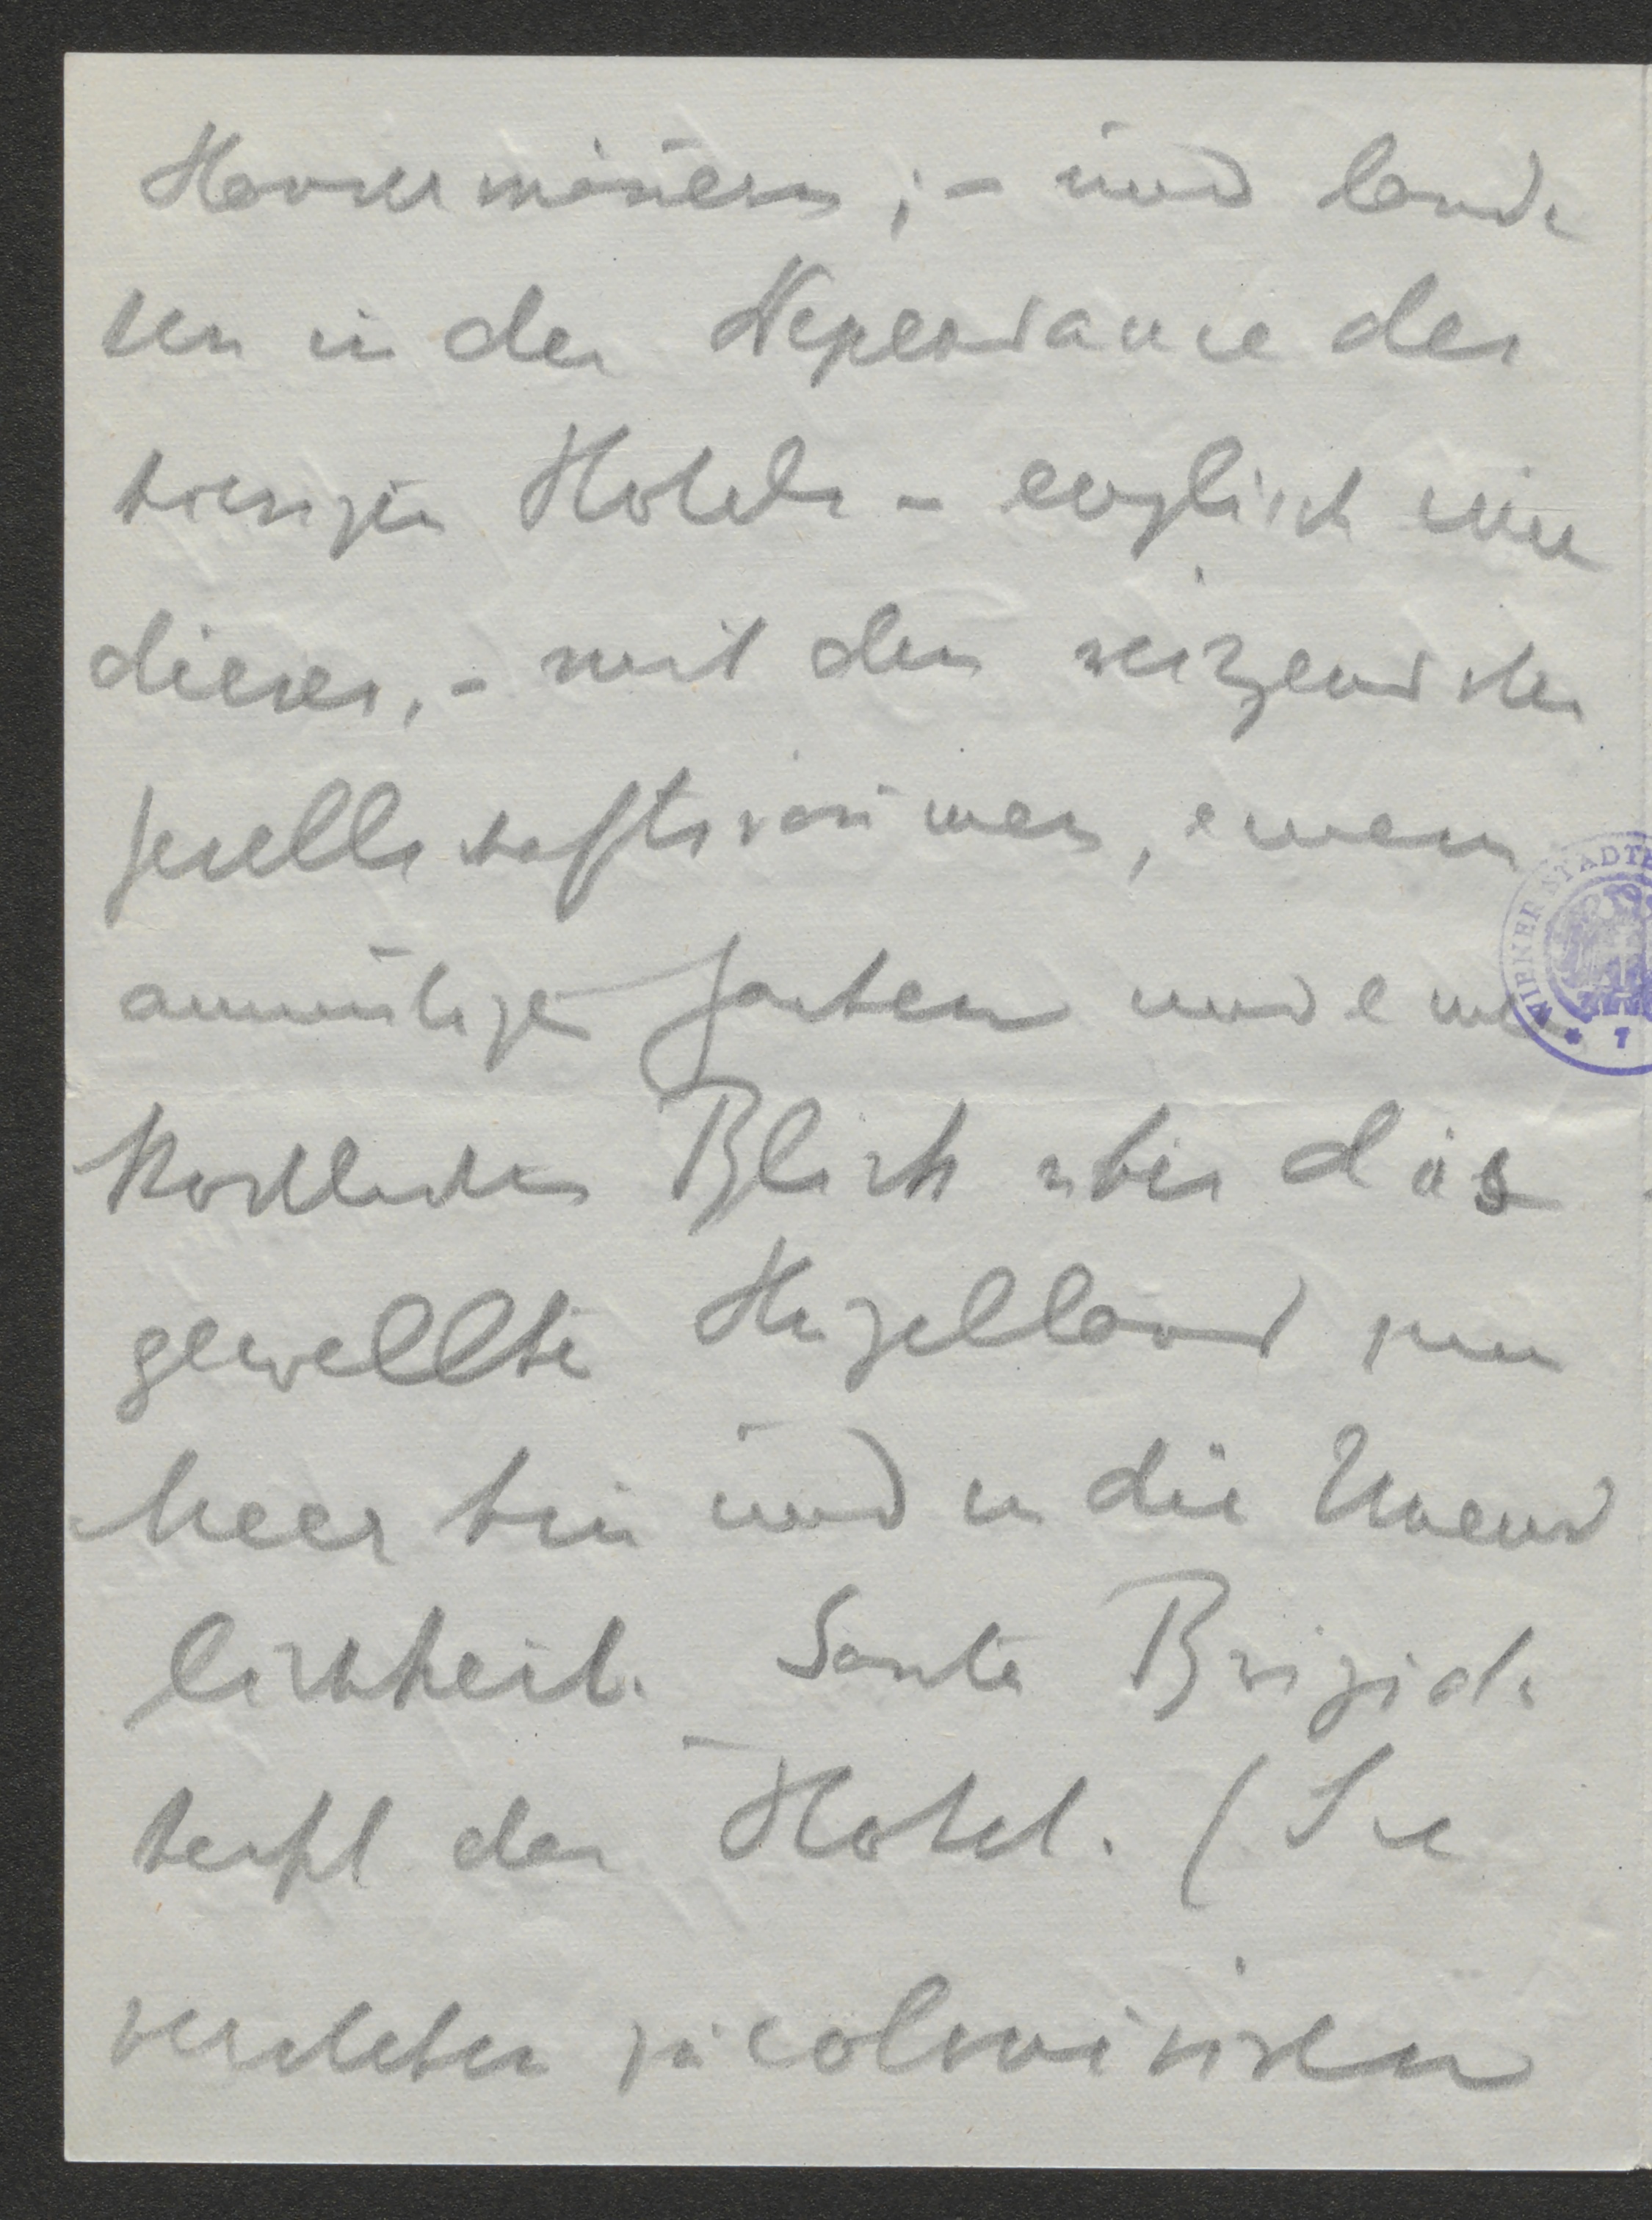 Häusermauern; - und lande
ten in der Dependance des
hiesigen Hotels - englisch wie
dieses, - mit den reizendsten
Gesellschaftsräumen, einem
anmutigen Garten und einem
köstlichen Blick über das
gewellte Hügelland zum
Meer hin und in die Unend
lichkeit. Santa Brigida
heisst das Hotel. (Sie
verstehen zu colonisiren
WIENER STADTB